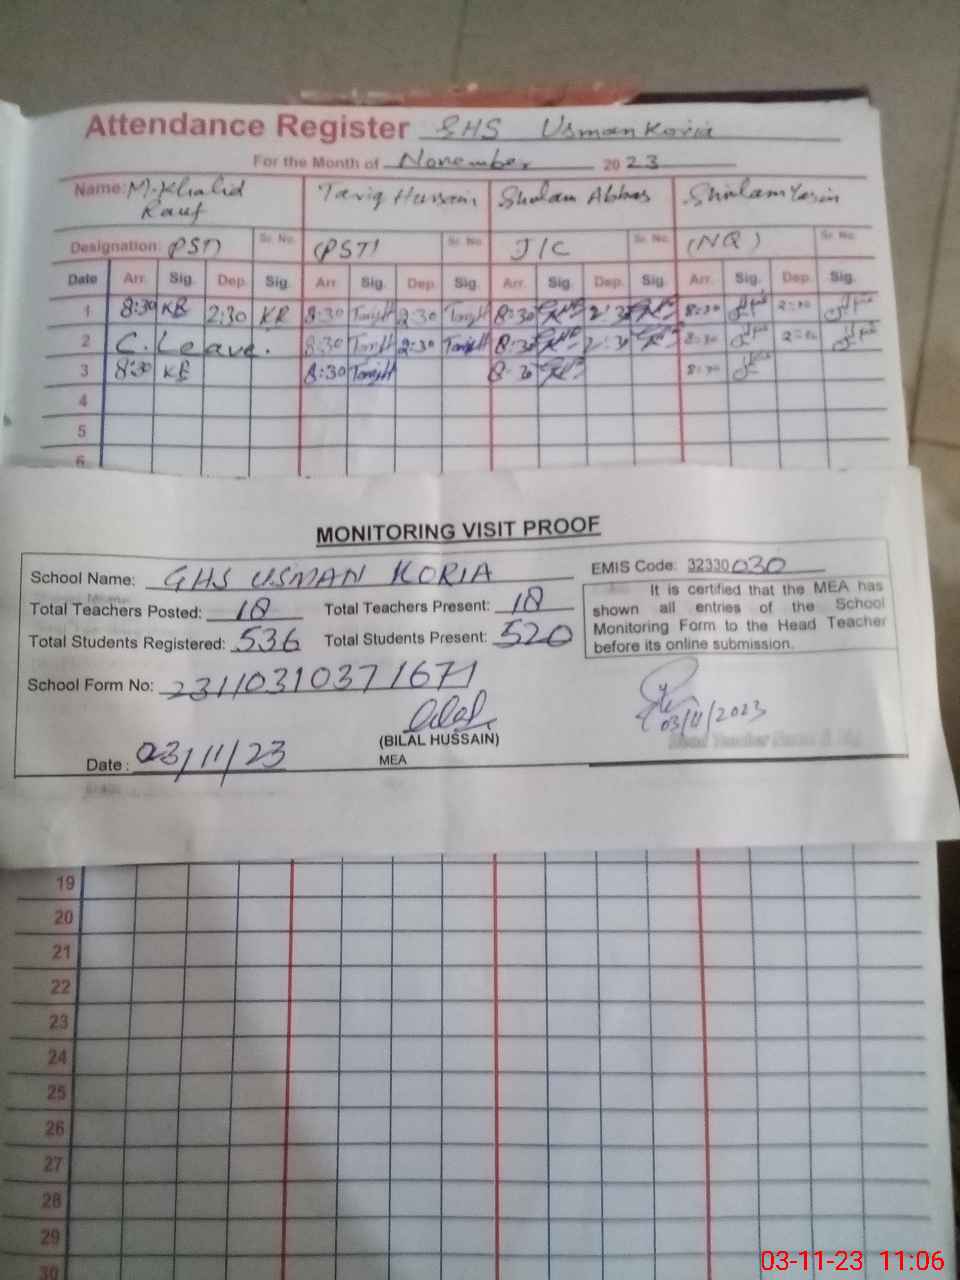 Attendance Register GHS Usman Koria
For the Month of November 2023
Name: M. Khalid Rauf Tariq Hussain Ghulam Abbas Ghulam Yasin
Designation: (PST) Sr. No. (PST) Sr. No. J/C Sr. No. (NQ) Sr. No.
Date Arr. Sig. Dep. Sig. Arr. Sig. Dep. Sig. Arr. Sig. Dep. Sig. Arr. Sig. Dep. Sig.
1 8:30 KR 2:30 KR 8:30 2:30 8:30 2:30 8:30 2:30
2 C. Leave. 8:30 2:30 8:30 2:30 8:30 2:30
3 8:30 KR 8:30 8:30 8:30
4
5
6
MONITORING VISIT PROOF
School Name: GHS USMAN KORIA EMIS Code: 32330030
Total Teachers Posted: 18 Total Teachers Present: 18
Total Students Registered: 536 Total Students Present: 520
It is certified that the MEA has
shown all entries of the School
Monitoring Form to the Head Teacher
before its online submission.
School Form No: 23110310371671
Bilal
03/11/2023
(BILAL HUSSAIN)
MEA
Date: 03/11/23
19
20
21
22
23
24
25
26
27
28
29
30
03-11-23 11:06